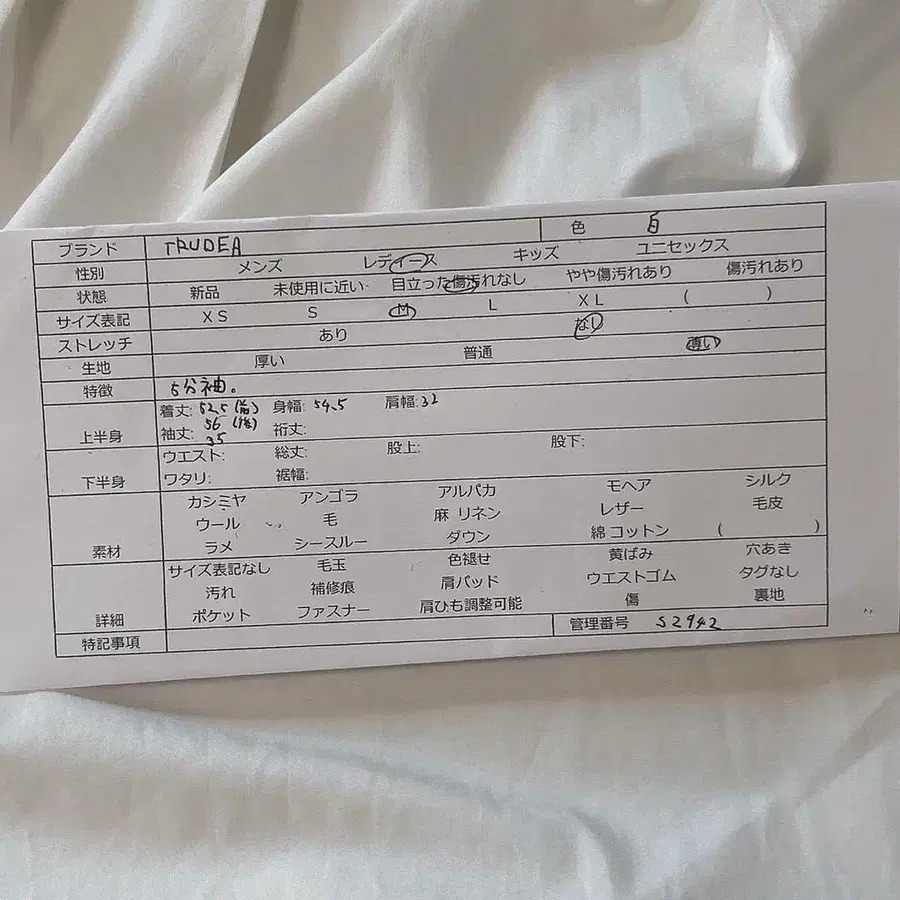 ブランド TRUDEA 色 白
性別 メンズ レディース キッズ ユニセックス
状態 新品 未使用に近い 目立った傷汚れなし やや傷汚れあり 傷汚れあり
サイズ表記 XS S M L XL ( )
ストレッチ あり なし
生地 厚い 普通 薄い
特徴 5分袖。
上半身 着丈: 52.5 (前) 身幅: 54.5 肩幅: 32
56 (後)
袖丈: 35 裄丈:
下半身 ウエスト: 総丈: 股上: 股下:
ワタリ: 裾幅:
素材 カシミヤ アンゴラ アルパカ モヘア シルク
ウール 毛 麻 リネン レザー 毛皮
ラメ シースルー ダウン 綿 コットン ( )
詳細 サイズ表記なし 毛玉 色褪せ 黄ばみ 穴あき
汚れ 補修痕 肩パッド ウエストゴム タグなし
ポケット ファスナー 肩ひも調整可能 傷 裏地
特記事項 管理番号 S2942